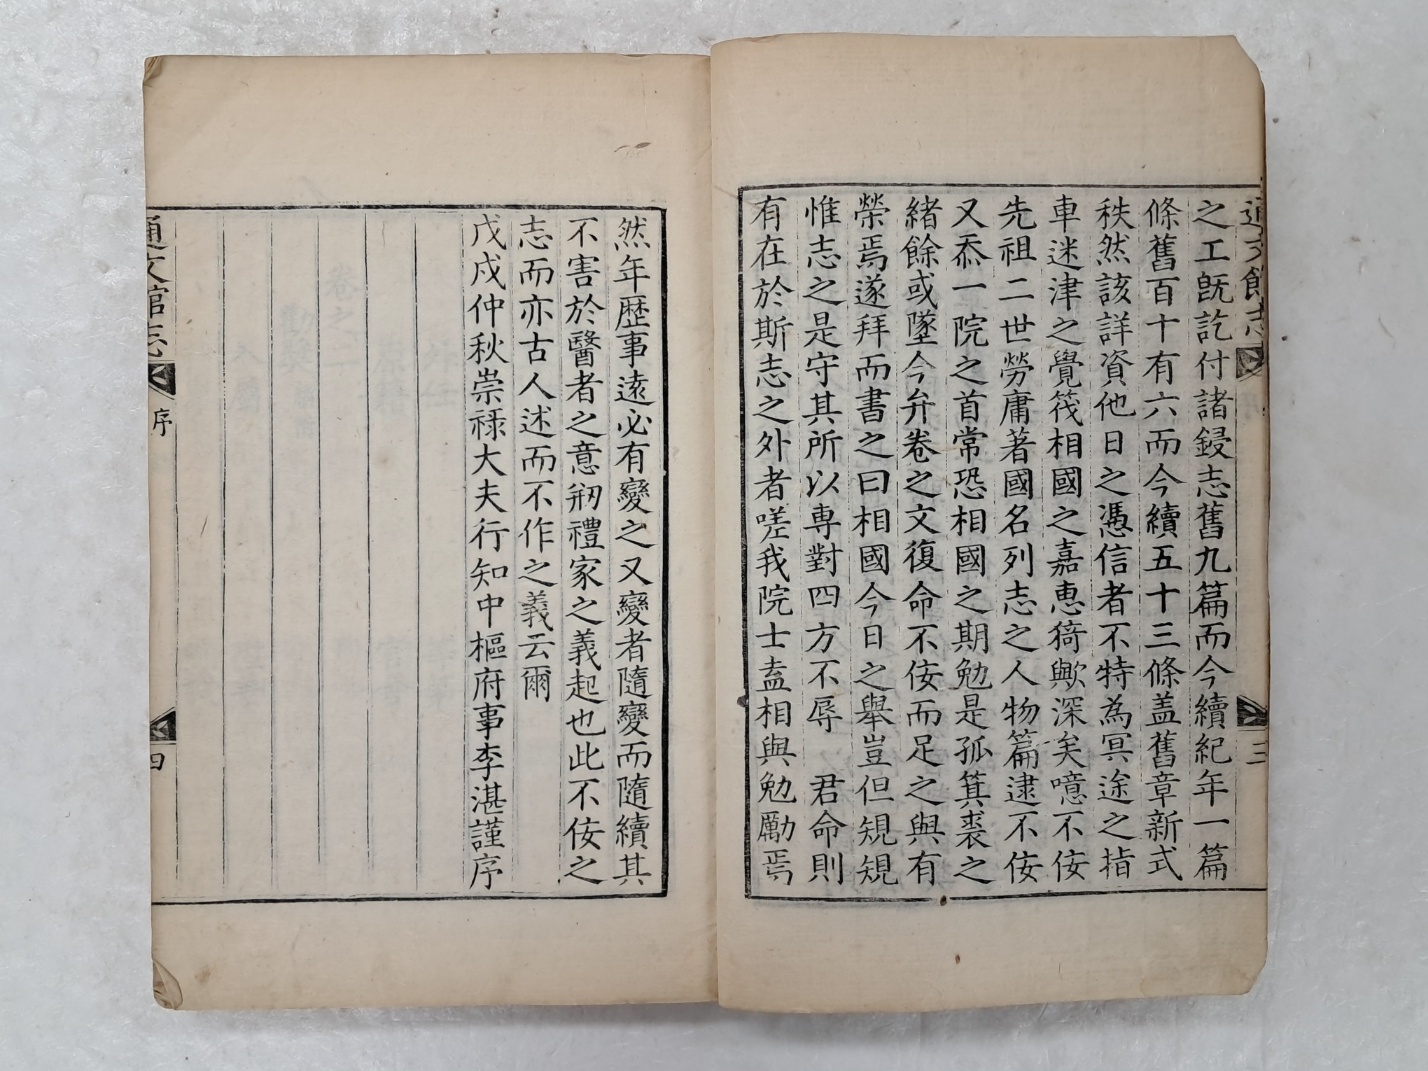 通文館志
三
之工旣訖付諸鋟志舊九篇而今續紀年一篇
條舊百十有六而今續五十三條盖舊章新式
秩然該詳資他日之憑信者不特為冥途之指
車迷津之覺筏相國之嘉惠猗歟深矣噫不佞
先祖二世勞庸著國名列志之人物篇逮不佞
又忝一院之首常恐相國之期勉是孤箕裘之
緖餘或墜今弁卷之文復命不佞而足之與有
榮焉遂拜而書之曰相國今日之擧豈但規規
惟志之是守其所以專對四方不辱　君命則
有在於斯志之外者嗟我院士盍相與勉勵焉
然年歷事遠必有變之又變者隨變而隨續其
不害於醫者之意刱禮家之義起也此不佞之
志而亦古人述而不作之義云爾
戊戌仲秋崇祿大夫行知中樞府事李湛謹序
通文館志
序
四